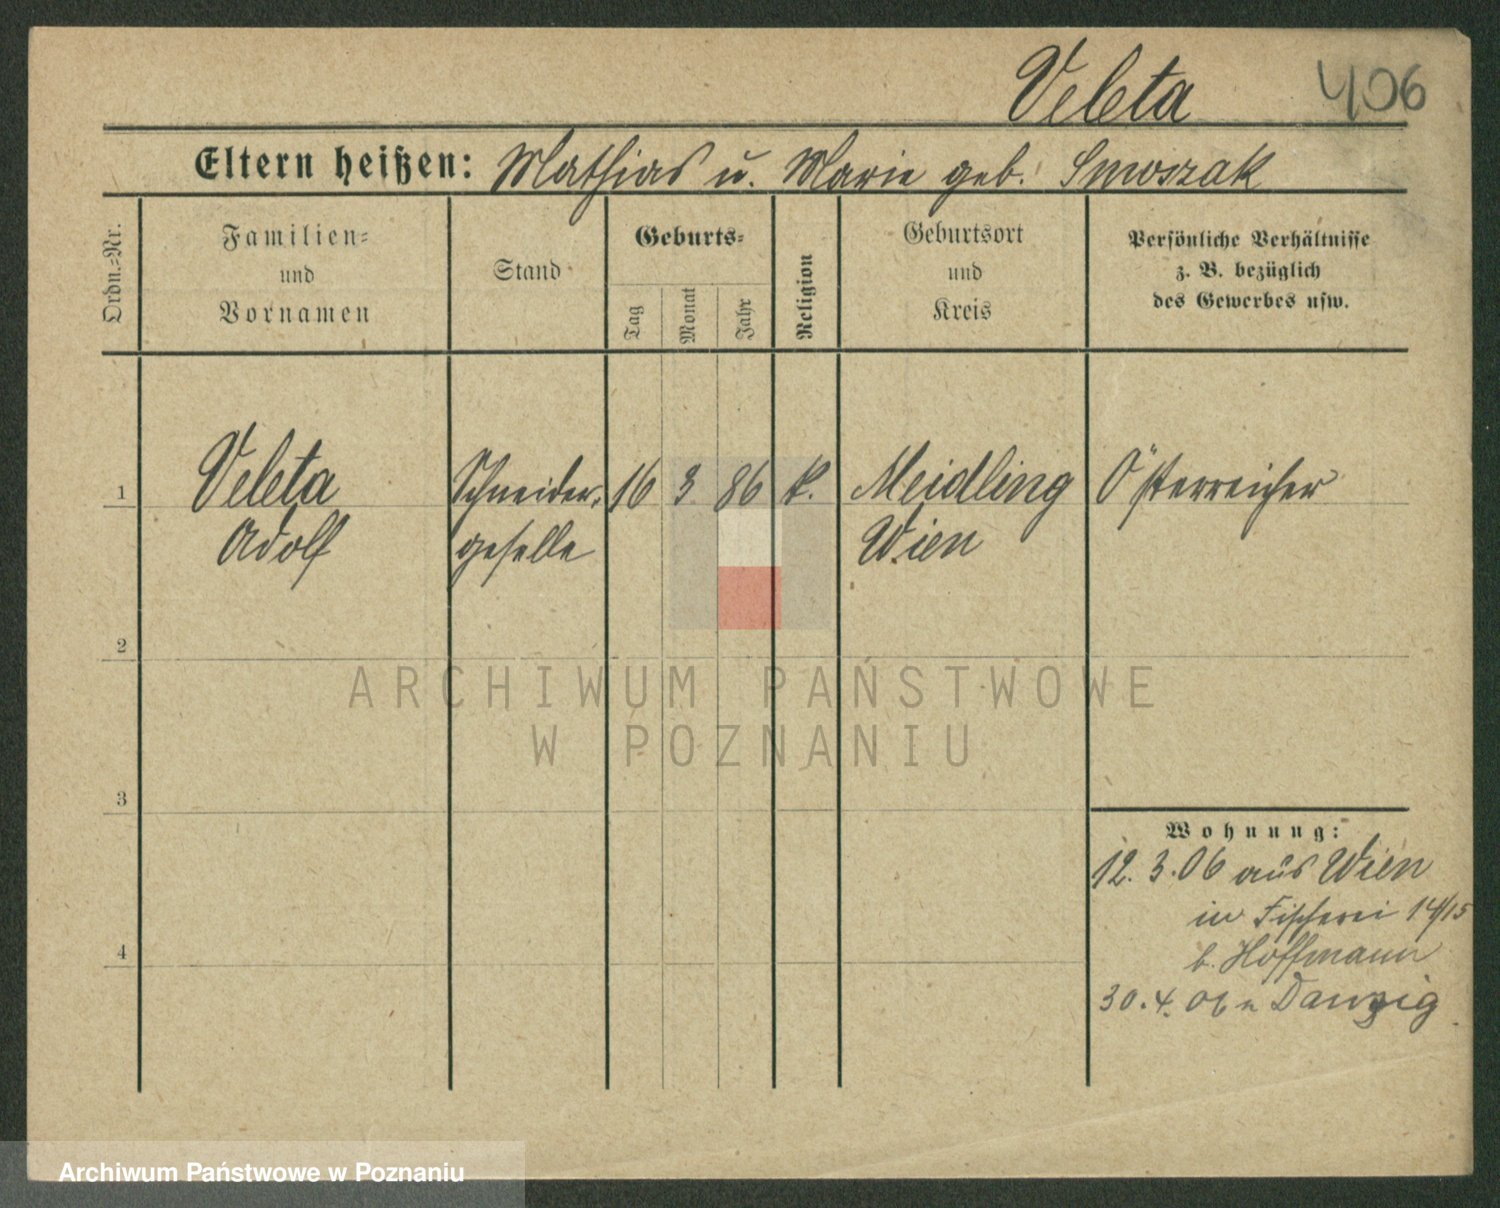 Veleta 406
Eltern heißen: Mathias u. Marie geb. Smoszak
Ordn.-Nr.
Familien-
und
Vornamen
Stand
Geburts-
Tag
Monat
Jahr
Religion
Geburtsort
und
Kreis
Persönliche Verhältnisse
z. B. bezüglich
des Gewerbes usw.
1 Veleta Schneider- 16 3 86 k. Meidling Österreicher
Adolf geselle Wien
2
ARCHIWUM PAŃSTWOWE
W POZNANIU
3
Wohnung:
12. 3. 06 aus Wien
in Fischerei 14/15
b. Hoffmann
4
30. 4. 06 n Danzig
Archiwum Państwowe w Poznaniu